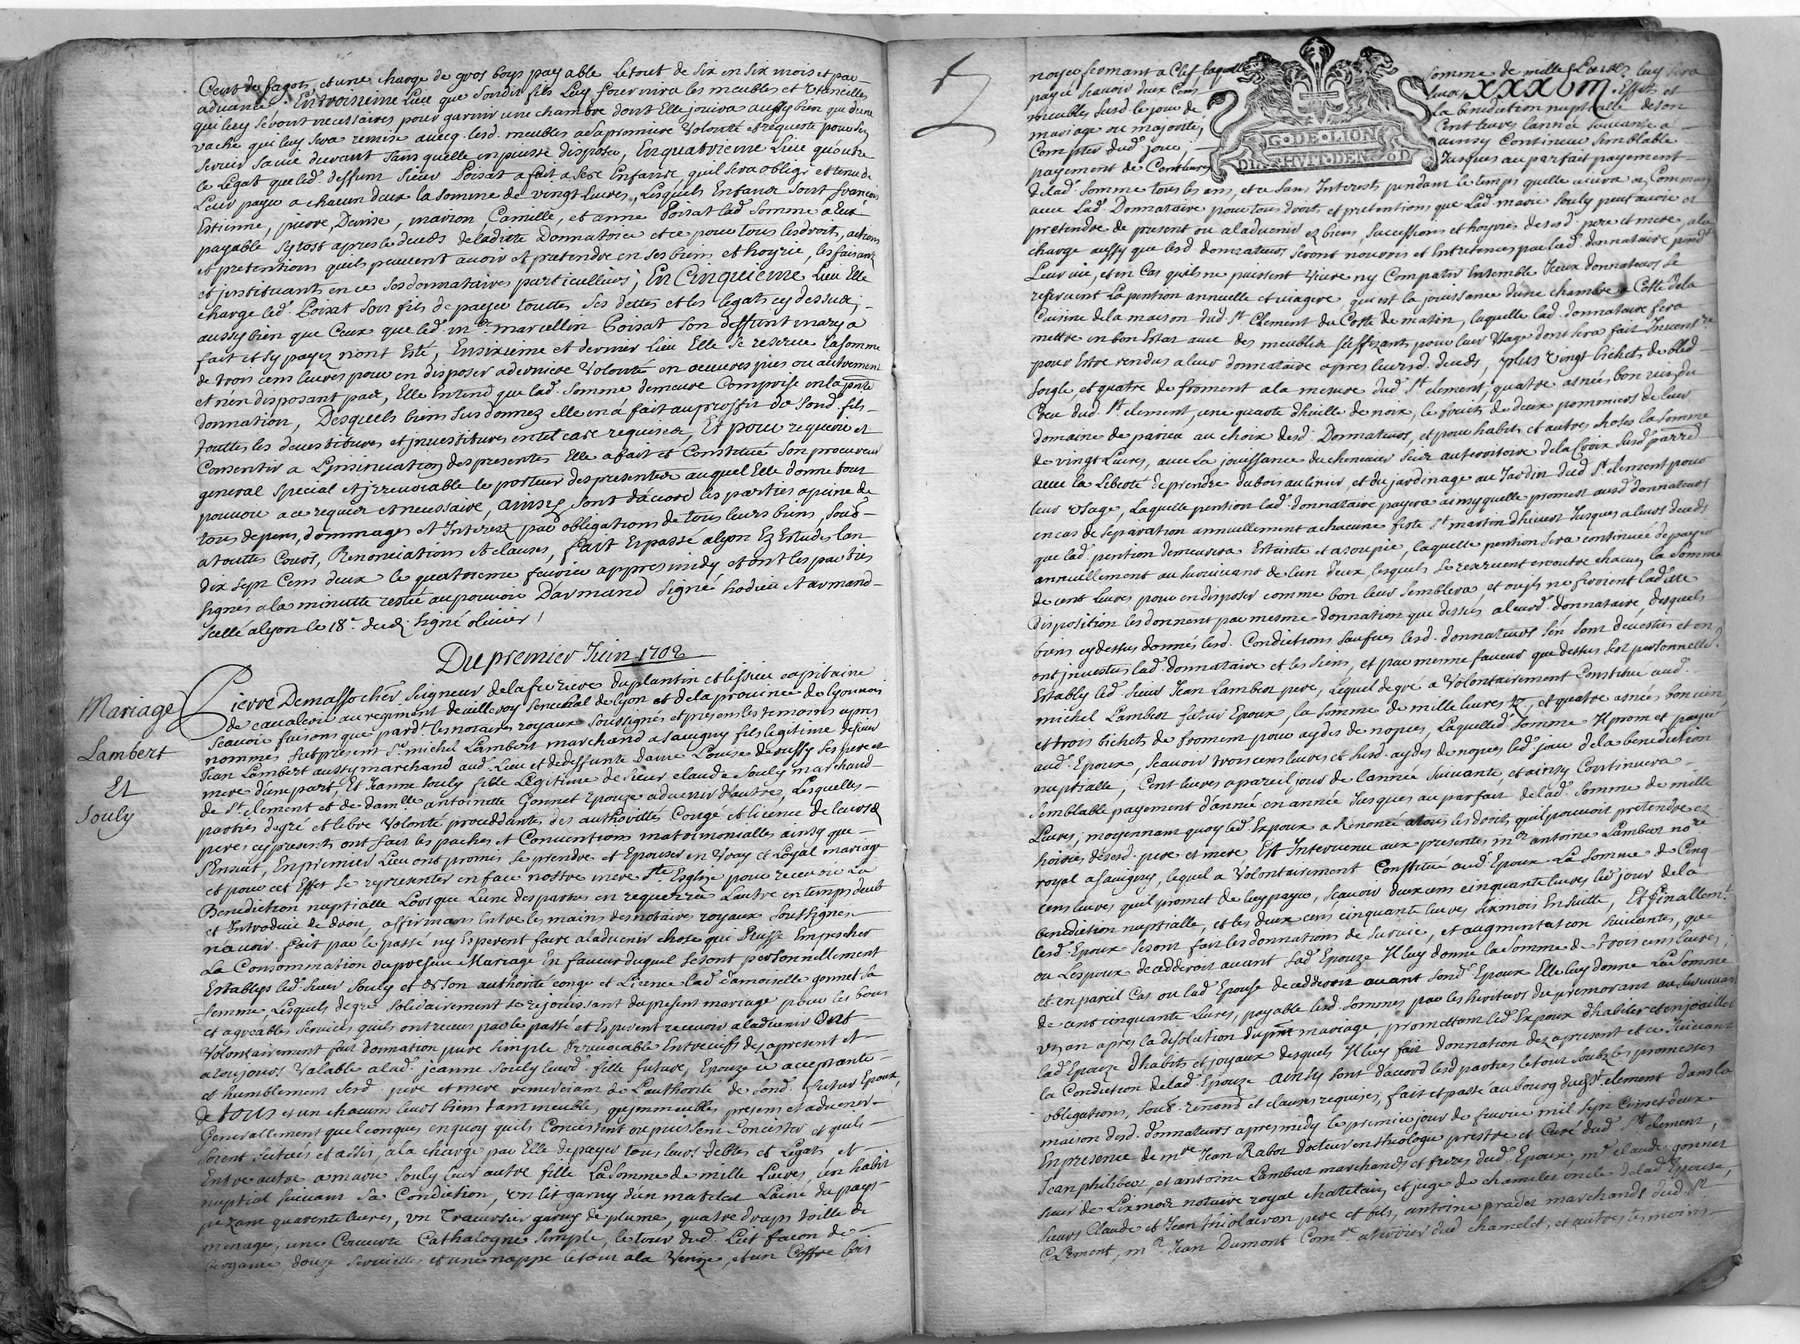 Cent de fagots, et une charge de gros boys payable le tout de six en six mois et par
advance; En troisieme Lieu que sondit fils Luy fournira les meubles et Utencilles
qui luy seront necessaires pour garnir une chambre dont Elle jouira aussy bien que d'une
vache qui luy sera remise avecq lesd. meubles a la premiere Volonté et requeste pour s'en
servir sa vie durant sans quelle en puisse disposer, En quatrieme Lieu qu'outre
le Légat que led. deffunt Sieur Poisat a fait a ses Enfants, quil sera obligé et tenu de
Leur payer a chacun deux la somme de vingt Livres, Lesquels Enfants sont francois
Estienne, pierre, Denise, marion, Camille, et anne Poisat lad. somme a Eux
payable sytost apres le deceds de laditte Donnatrice et ce pour tous les droits, actions
et pretentions quils peuvent avoir et pretendre en ses biens et hoyrie, les faisant
et instituant en ce ses donnataires particulliers; En Cinquieme Lieu Elle
charge led. Poisat son fils de payer touttes ses dettes et les legats cy dessus,
aussy bien que Ceux que led. me. marcellin Poisat son deffunt mary a
fait et sy payez n'ont Esté, En sixieme et dernier Lieu Elle se reserve la somme
de trois cens livres pour en disposer a derniere Volonté en oeuvres pies ou autrement
et n'en disposant pas, Elle Entend que lad. somme demeure Comprise en la pnte
donnation, Desquels biens sus donnez elle en a fait au proffit de sond. fils
touttes les devestitures et investitures en tel cas requises, Et pour requerir et
Consentir a L'insinuation des presentes Elle a fait et Constitué son procureur
general special et irrevocable le porteur des presentes auquel Elle donne tout
pouvoir a ce requis et necessaire, ainsy sont d'acord les parties a peine de
tous depens, dommages et Interest par obligations de tous leurs biens, soub
a touttes Cours, Renonciations et clauses, fait et passé a lyon Ez Estudes lan
dix sept Cens deux le quatrieme fevrier appres midy et ont les parties
signés a la minutte restée au pouvoir D'armand Signé hodieu et armand
Scellé a lyon le 18e. dud. Signé olivier!
Du premier Juin 1702
Mariage
Lambert
Et
Souly
Pierre Demasso cher. Seigneur de la feriere du plantin et lissieu capitaine
de cavalerie au regiment de villeroy senechal de lyon et de la province de lyonnois
scavoir faisons que pardt. les notaires royaux soussignés et presens les temoins apres
nommés fut present Sr. michel Lambert marchand a savigny fils legitime de sieur
Jean Lambert aussy marchand aud. Lieu et de deffunte dame Louise de bussy ses pere et
mere d'une part, Et Jeanne Souly fille Légitime de Sieur claude Souly marchand
de St. Clement et de damlle antoinette Gonnet Epouze advenir d'autre, Lesquelles
parties de gré et libre Volonté proceddantes des authorités Congé et licence de leursd.
peres cy presents ont fait les paches et Conventions matrimonialles ainsy que
s'Ensuit, En premier Lieu ont promis se prendre et Epouser en Vray et Loyal mariage
et pour cet Effet se representer en face nostre mere Ste. Esglize pour recevoir La
Benediction nuptialle Lorsque L'une des parties en requerera Lautre en temps deub
et Introduit de droit, affirmans Entre les mains des notaires royaux soussignes
n'avoir fait par le passé ny Esperent faire a ladvenir chose qui Puisse Empescher
La Consommation du present Mariage En faveur duquel se sont personnellement
Establys led. Sieur Souly et de son authorité congé et Licence lad. damoiselle gonnet sa
femme, Lesquels de gré solidairement se rejouissant du present mariage pour les bons
et agreables services quils ont receus par le passé et Esperent recevoir a ladvenir Ont
Volontairement fait donnation pure simple Irrevocable Entre vifs des a present et
a toujours Valable a lad. jeanne Souly leurd. fille future, Epouze ce acceptante
et humblement sesd. pere et mere remerciant de L'authorité de sond. futur Epoux,
de tous et un chacuns leurs biens tant meubles, qu'immeubles presens et advenir
Generallement quelconques en quoy quils Concistent ou puissent Concister et quils
soient scitués et assis, a la charge par Elle de payer tous leurs debtes et Légats, et
Entre autre a marie Souly leur autre fille La somme de mille Livres, un habit
nuptial suivant sa Condition, Un lit garny d'un matelas Laine du pays
pezant quarente livres, un Traversier garny de plume, quatre draps toille de
menage, une Couverte Cathalogne simple, le tour dud. Lit facon de
bergame, douze serviettes et une nappe le tout a la Venize, et un Coffre bois
noyer fermant a Clef laquelle somme de mille Livres luy sera
payée scavoir deux Cens livres Effets et
meubles susd. le jour de la benediction nuptialle de son
mariage ou majorité, Cent livres l'année suivante a
Compter dud. jour ainsy Continuer semblable
payement de Cent livres Jusques au parfait payement
XXXVIII
G.DE.LION
DIX.HUIT.DEN
de lad. somme tous les ans, et ce sans Interests pendant le temps quelle vivra en Commun
avec lad. Donnataire pour tous droits et pretentions que Lad. marie Souly peut avoir et
pretendre de present ou a ladvenir ez biens, successions et hoyries desesd. pere et mere, a la
charge aussy que lesd. donnateurs seront nourris et Entretenus par led. donnataire pendt.
Leur vie, et en Cas quils ne puissent vivre ny Compatir Ensemble Iceux donnateurs se
reservent La pention annuelle et viagere qui est la jouissance d'une chambre a Coste de la
Cuisine de la maison dud. St. Clement du Coste de matin, laquelle lad. donnataire fera
mettre en bon Estat avec des meubles suffizants pour leur Usage dont sera fait Inventre.
pour Estre rendus a leur donnataire apres leursd. deceds, plus vingt bichets de bled
soigle et quatre de froment a la mesure dud. St. clement, quatre asnées bon vin du
Creu dud. St. clement, une quarte d'huille de noix, le fruits de deux pommiers de leur
domaine de parieu au choix desd. Donnateurs, et pour habits et autres choses la somme
de vingt Livres, avec La jouissance du chenevier scize au territoire de la Croix susd. parre.
avec la Liberté de prendre du bois au bucher et du jardinage au Jardin dud. St. clement pour
leur Usage, Laquelle pention lad. donnataire payera ainsy quelle promet ausd. donnateurs
en cas de separation annuellement a chacune feste St. martin d'hiver Jusques a leurs deceds
que lad. pention demeurera Esteinte et asoupie, laquelle pention sera continuée de payer
annuellement au survivant de lun deux, lesquels se reservent en outre chacun la somme
de cent Livres pour en disposer comme bon leur semblera, et ou ils ne feroient laditte
disposition les donnent par mesme donnation que dessus a leurd. donnataire, desquels
biens cy dessus donnés lesd. Condictions saufves lesd. donnateurs s'en sont devestus et en
ont investus lad. donnataire et les siens, et par mesme faveur que dessus sest personnelle.
Estably led. Sieur Jean Lambert pere, Lequel de gré a Volontairement Constitué aud.
michel Lambert futur Epoux, la somme de mille livres, et quatre asnées bon vin
et trois bichets de froment pour aydes de nopces, Laquelle d. somme Il promet payer
aud. Epoux, scavoir trois cens livres et susd. aydes de nopces led. jour de la benediction
nuptialle, Cent livres a pareil jour de l'année suivante et ainsy Continuera
semblable payement d'année en année Jusques au parfait de lad. somme de mille
Livres, moyennant quoy led. Epoux a Renoncé a tous les droits quil pouvoit pretendre ez
hoiries desesd. pere et mere Est Intervenu aux presentes me. antoine Lambert nore.
royal a Savigny, lequel a Volontairement Constitué aud. Epoux La somme de Cinq
cens livres quil promet de luy payer, scavoir deux cens cinquante livres led. jour de la
benediction nuptialle, et les deux cens cinquante livres six mois Ensuitte, Et finallemt.
lesd. Epoux se sont fait les donnations de survie, et augmentation suivantes, que
ou Lespoux decedderoit avant lad. Epouze Il luy donne la somme de trois cens livres,
et en pareil Cas ou lad. Epouse decedderoit avant sond. Epoux Elle luy donne La somme
de cent cinquante Livres, payable lesd. sommes par les heritiers du premourant au survivant
un an apres la disolution du pnt mariage, promettant led. Epoux d'habiller et enjoailler
lad. Epouze d'habits et joyaux desquels Il luy fait donnation des a present et ce suivant
la Condiction de lad. Epouze ainsy sont d'acord lesd. parties le tout soubz les promesses
obligations, soub. renond. et clauses requises, fait et passé au bourg dud. St. clement dans la
maison desd. donnateurs apres midy le premier jour de fevrier mil sept Cens et deux
En presence de mre. Jean Rabot docteur en theologie prestre et Curé dud. St. clement,
Jean philibert, et antoine Lambert marchands et freres dud. Epoux, me. claude gonnet
sieur de Liumois notaire royal chatelain et juge de chamelet oncle de lad. Epouse,
sieurs Claude et Jean thiolairon pere et fils, antoine prades marchands dud. St.
Clement, me. Jean Dumont Comre. a terrier dud. chamelet, et autres temoins